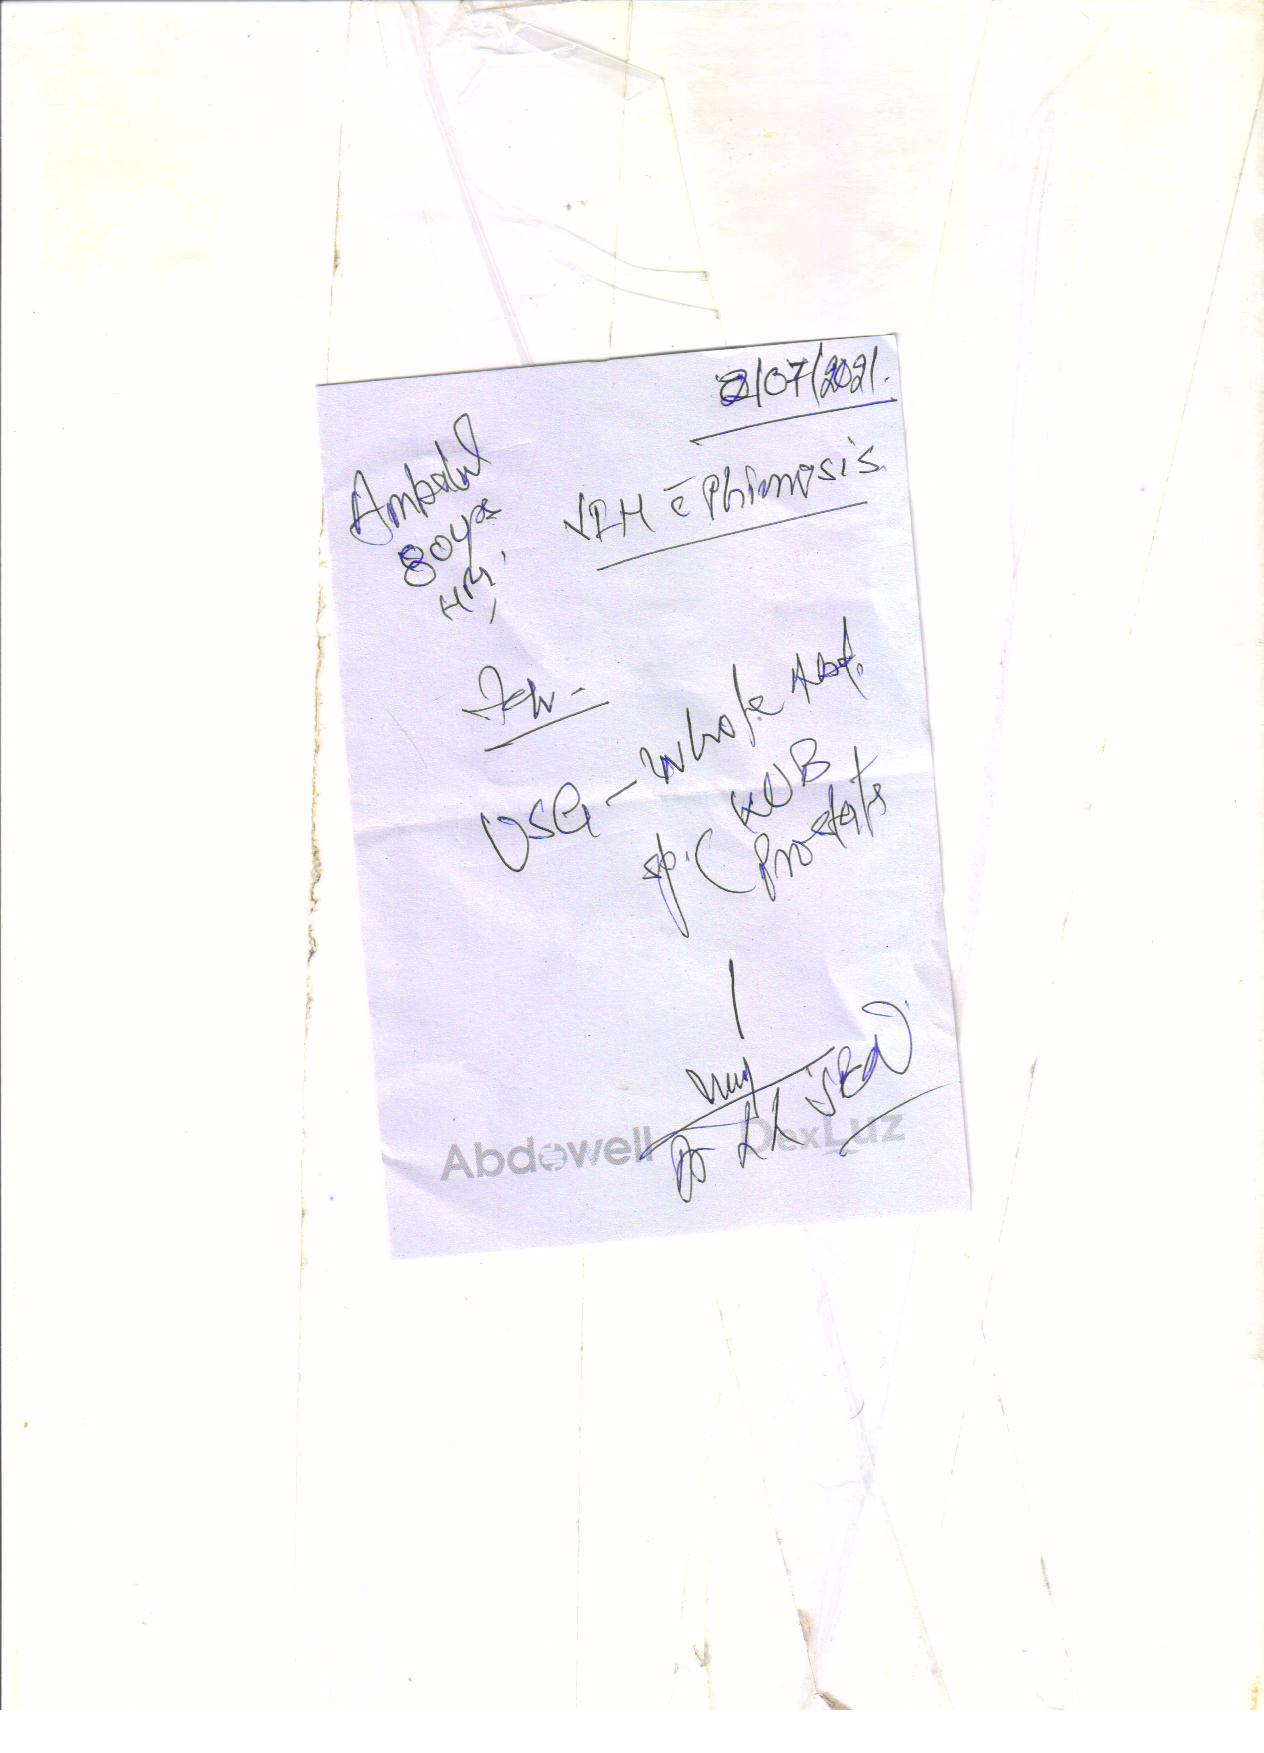 2/07/2021.
Ambalal
80yrs
HM,
SPH c̄ Phimosis
Adv-
USG - whole Abd.
sp. ( KUB
Prostate
Dr SEN
Abdowell DexLuz